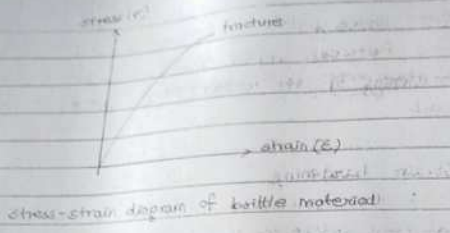 stress (σ)
fracture
strain (ε)
stress-strain diagram of brittle material